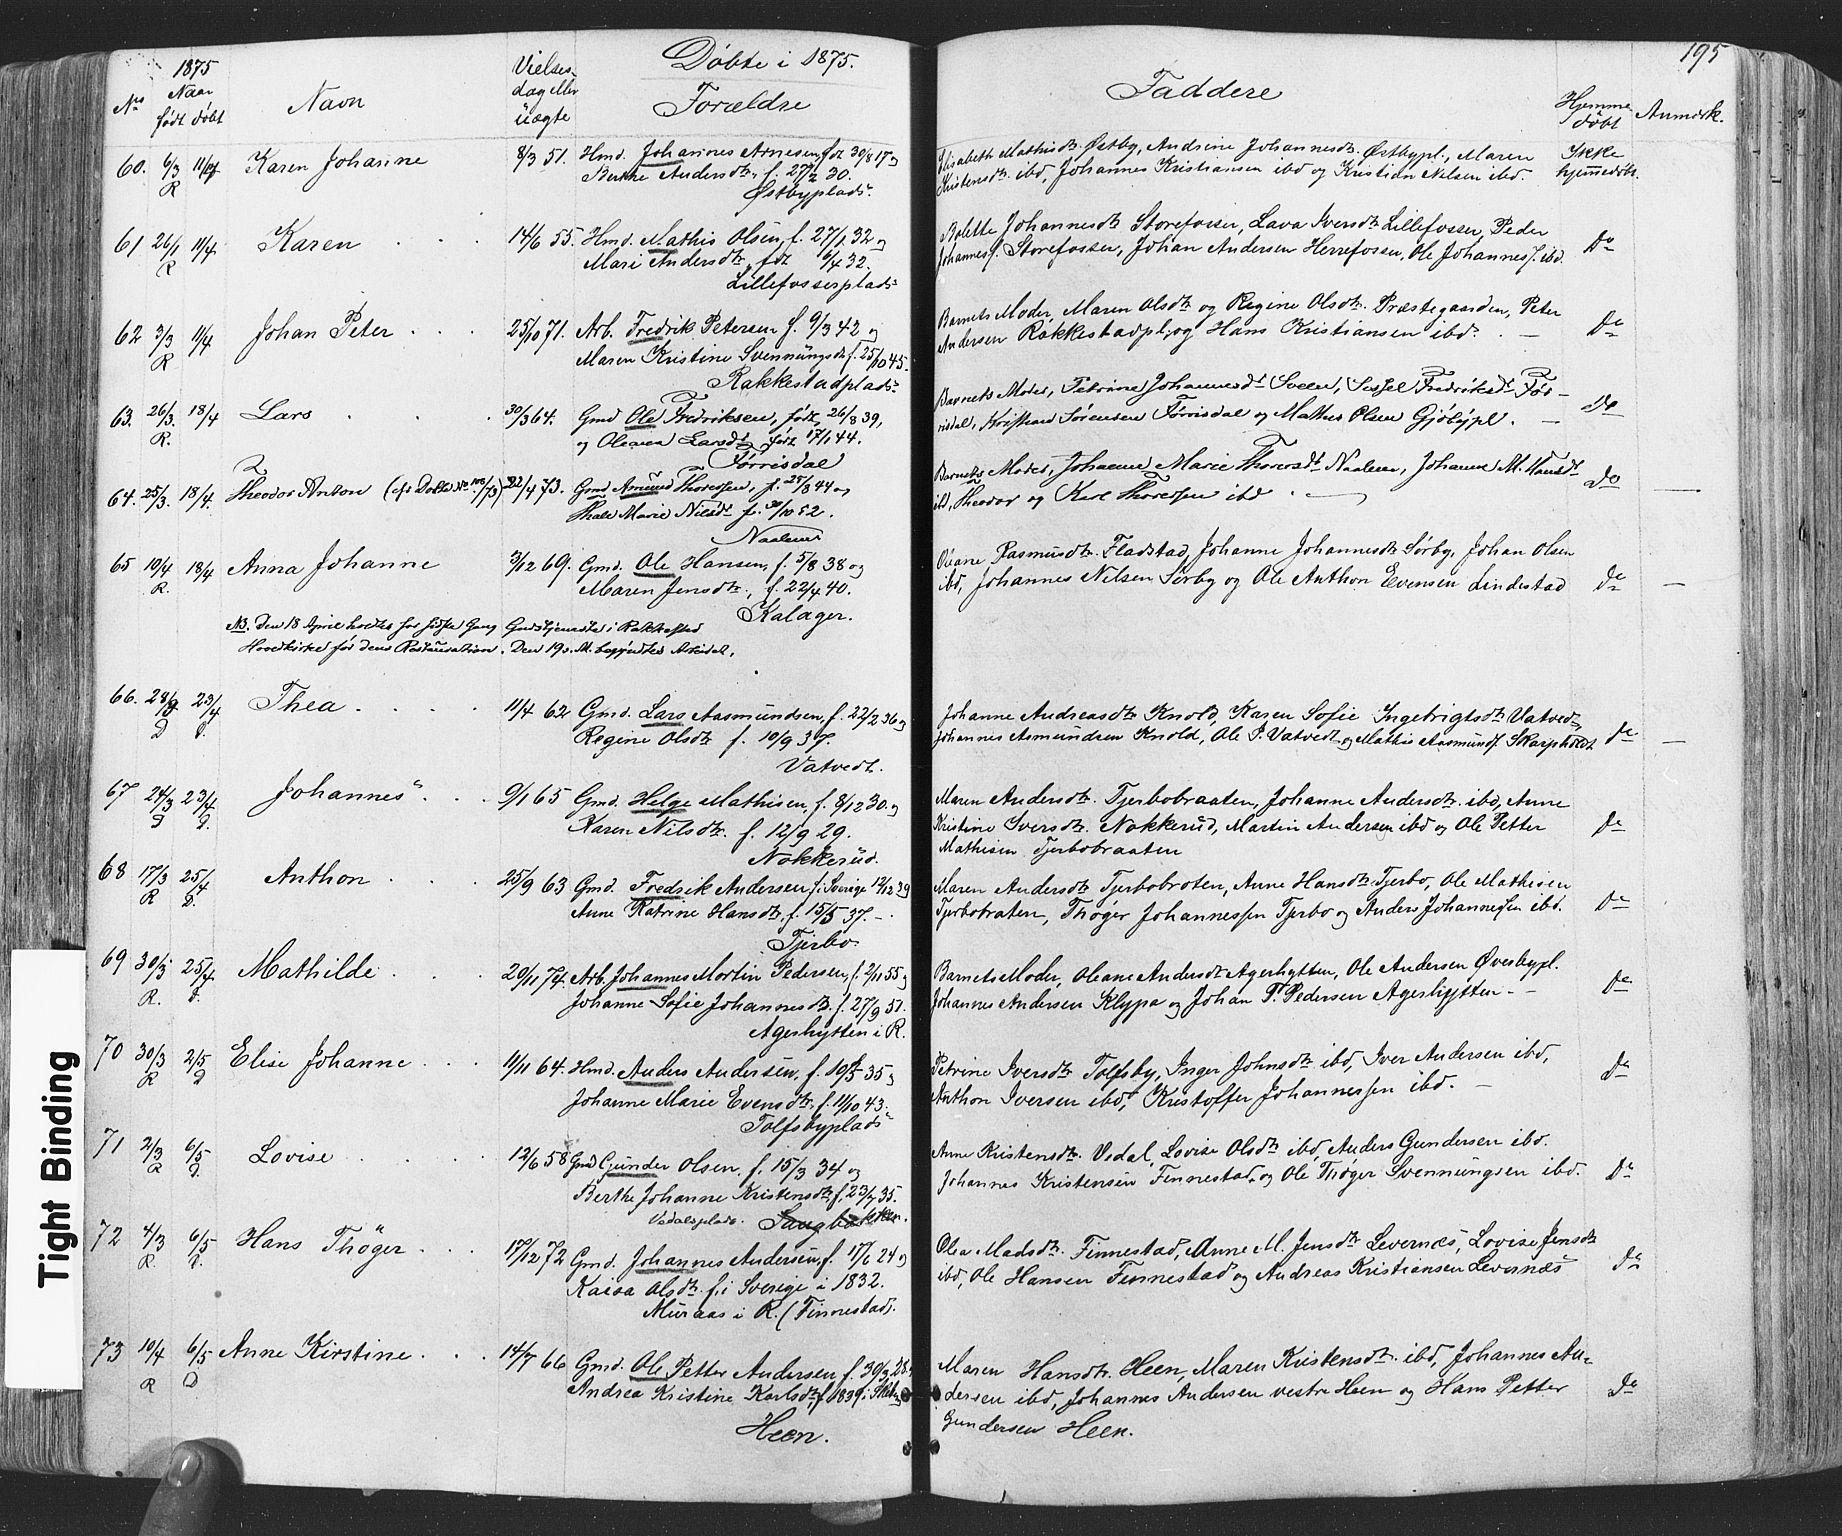 Døbte i 1875.
195
No
1875
Naar
født døbt
Navn
Vielses-
dag eller
uægte
Forældre
Faddere
Hjemme
døbt
Anmærk.
60. 6/3 11/4 Karen Johanne 8/3 51. Hmd. Johannes Arnesen, født 30/8 17 og
R Berthe Andersdtr., f. 27/2 30.
Østbyplads.
Elisabeth Mathisdtr. Østby, Andrine Johannesdtr. Østbypl., Maren
Kristensdtr. ibd, Johannes Kristiansen ibd og Kristian Nilsen ibd.
Ikke
hjemmedøbt.
61 26/1 11/4 Karen 14/6 55. Hmd. Mathis Olsen, f. 27/1 32 og
R Mari Andersdtr., født 6/4 32.
Lillefosserplads
Bolette Johannesdtr. Storefosser, Lava Iversdtr. Lillefosser, Peder
Johannesf. Storefosser, Johan Andersen Herrefosser, Ole Johannesf. ibd.
Do
62 3/3 11/4 Johan Peter 25/10 71. Arb. Fredrik Petersen f. 9/3 42 og
R Maren Kristine Svennungsdtr. f. 25/10 45.
Rakkestadplads.
Barnets Moder, Maren Olsdtr. og Regine Olsdtr. Præstegaarden, Peter
Andersen Rakkestadpl. og Hans Kristiansen ibd.
Do
63. 26/3 18/4 Lars 30/3 64. Gmd Ole Fredriksen, født 26/8 39,
R. og Oleana Larsdtr. født 17/1 44.
Førrisdal
Barnets Moder, Petrine Johannesdt Sveen, Sissel Fredriksdt Før-
risdal, Kristian Sørensen Førrisdal og Mathis Olsen Gjøbypl.
Do
64. 25/3. 18/4. Theodor Anton (cfr Døbte No 108/73) 22/4 73. Gmd Amund Thoresen, f. 25/8 44 og
Thale Marie Nilsdt f. 30/10 52.
Naalum
Barnets Moder, Johanne Marie Thoresdt Naalum, Johanne M. Hansdt
ibd, Theodor og Karl Thoresen ibd.
Do
65 10/4 18/4 Anna Johanne 3/12 69. Gmd. Ole Hansen, f. 5/8 38 og
R. Maren Jensdtr., f. 22/4 40.
Kalager.
Oleane Rasmusdtr. Fladstad, Johanne Johannesdtr Sørby, Johan Olsen
ibd, Johannes Nilsen Sørby og Ole Anthon Evensen Lindestad
Do
NB. Den 18 April holdtes for sidste Gang Gudstjeneste i Rakkestad
Hovedkirke før dens Restauration. Den 19. M. begyndtes Arbeidet.
66. 28/2 23/4 Thea 11/4 62 Gmd. Lars Aasmundsen, f. 22/2 36 og
D D. Regine Olsdtr f. 10/9 37.
Vatvedt.
Johanne Andreasdtr Knold, Karen Sofie Ingebrigtsdtr Vatvedt,
Johannes Asmundsen Knold, Ole P. Vatvedt og Mathis Aasmundsf. Skarpholdt
Do
67 24/3 23/4 Johannes 9/1 65 Gmd. Helge Mathisen, f. 8/12 30. og
D D. Karen Nilsdtr. f. 12/9 29.
Nokkerud.
Maren Andersdtr. Tjerbobraaten, Johanne Andersdtr. ibd, Anne
Kristine Iversdtr. Nokkerud, Martin Andersen ibd og Ole Petter
Mathisen Tjerbobraaten
Do
68 17/3 25/4 Anthon 25/9 63 Gmd. Fredrik Andersen f. i Sverige 12/12 39
R D. Anne Katrine Hansdtr, f. 15/5 37.
Tjerbo
Maren Andersdtr Tjerbobroten, Anne Hansdtr Tjerbo, Ole Mathisen
Tjerbobraten, Thøger Johannessen Tjerbo og Anders Johannessen ibd.
Do
69 30/3 25/4 Mathilde 20/11 74. Arb. Johannes Martin Pedersen, f. 2/11 55 og
R. D. Johanne Sofie Johannesdtr. f. 27/9 51.
Agerhytten i R.
Barnets Moder, Oleane Andersdtr Agerhytten, Ole Andersen Øvesbypl.
Johannes Andersen Klypa og Johan P. Pedersen Agerhytten
Do
70 30/3 2/5 Elise Johanne 11/11 64. Hmd. Anders Andersen, f. 10/5 35 og
R D Johanne Marie Evensdtr, f. 11/10 43.
Tolfsbyplads
Petrine Iversdtr Tolfsby, Inger Johnsdtr ibd, Iver Andersen ibd,
Anthon Iversen ibd, Kristoffer Johannessen ibd.
Do
71 2/3 6/5 Lovise 12/6 58 Gmd Gunder Olsen, f. 15/3 34 og
R D. Berthe Johanne Kristensdtr, f. 23/7 35.
Vedalsplads.
Anne Kristensdtr. Vedal, Lovise Olsdtr ibd, Anders Gundersen ibd.
Johannes Kristensen Finnestad, og Ole Thøger Svennungsen ibd.
Do
72 4/3 6/5 Hans Thøger 17/12 72 Gmd. Johannes Andersen, f. 17/6 24 og
R. D. Kaisa Olsdtr. f. i Sverige i 1832.
Muraas i R. (Finnestad).
Olea Madsdtr. Finnestad, Anne M. Jensdtr Levernæs, Lovise Jensdtr
ibd, Ole Hansen Finnestad og Andreas Kristiansen Levernæs
Do
73 10/4 6/5 Anne Kirstine 14/7 66 Gmd. Ole Petter Andersen f. 30/3 28.
R D Andrea Kristine Karlsdtr, f. 1839.
Heen.
Maren Hansdtr. Heen, Maren Kristensdtr. ibd, Johannes An-
dersen ibd, Johannes Andersen vestre Heen og Hans Petter
Gundersen Heen.
Do
Tight Binding